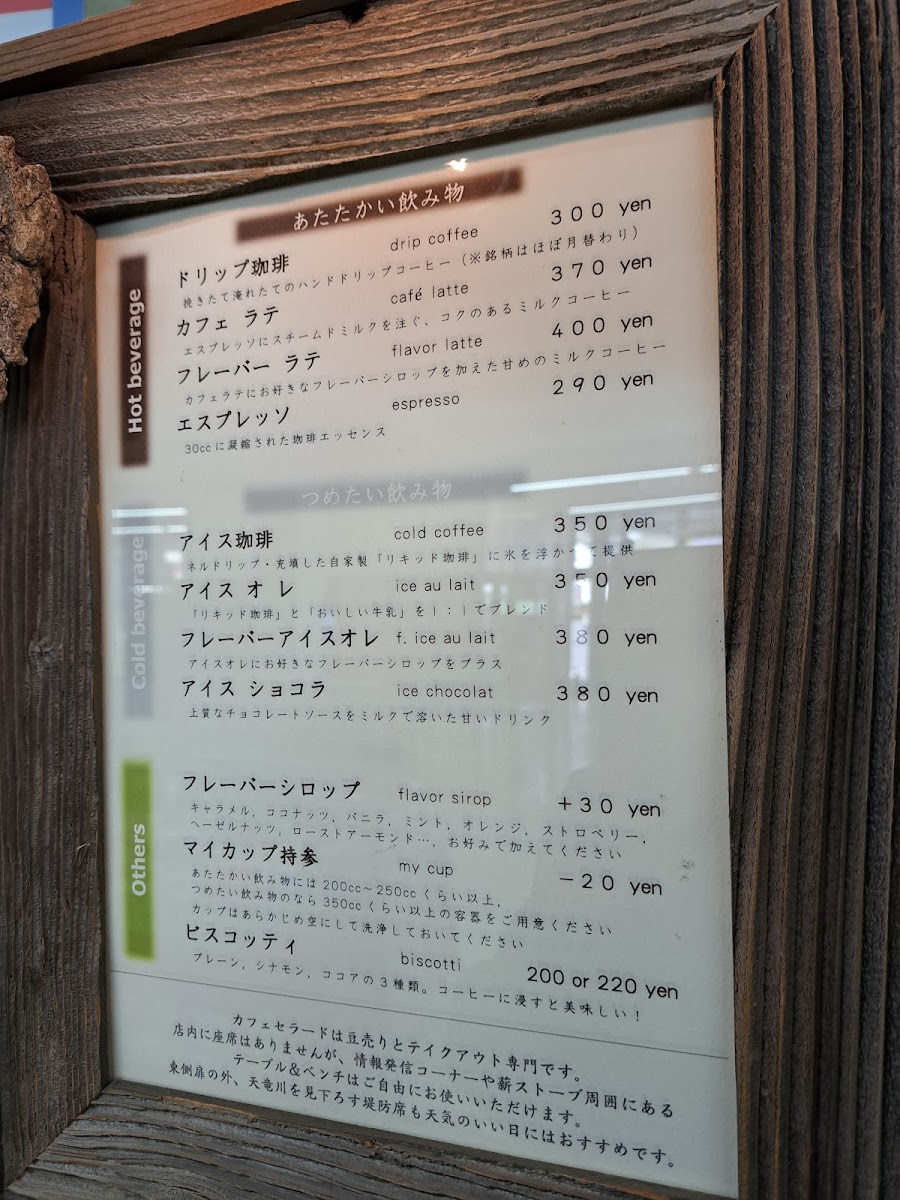 あたたかい飲み物
Hot beverage
ドリップ珈琲 drip coffee 300 yen
挽きたて淹れたてのハンドドリップコーヒー(※銘柄はほぼ月替わり)
カフェ ラテ café latte 370 yen
エスプレッソにスチームドミルクを注ぐ、コクのあるミルクコーヒー
フレーバー ラテ flavor latte 400 yen
カフェラテにお好きなフレーバーシロップを加えた甘めのミルクコーヒー
エスプレッソ espresso 290 yen
30ccに凝縮された珈琲エッセンス
つめたい飲み物
Cold beverage
アイス珈琲 cold coffee 350 yen
ネルドリップ・充填した自家製「リキッド珈琲」に氷を浮かべて提供
アイス オ レ ice au lait 350 yen
「リキッド珈琲」と「おいしい牛乳」を1:1でブレンド
フレーバーアイスオレ f. ice au lait 380 yen
アイスオレにお好きなフレーバーシロップをプラス
アイス ショコラ ice chocolat 380 yen
上質なチョコレートソースをミルクで溶いた甘いドリンク
Others
フレーバーシロップ flavor sirop +30 yen
キャラメル, ココナッツ, バニラ, ミント, オレンジ, ストロベリー,
ヘーゼルナッツ, ローストアーモンド…, お好みで加えてください
マイカップ持参 my cup −20 yen
あたたかい飲み物には 200cc~250cc くらい以上,
つめたい飲み物のなら 350cc くらい以上の容器をご用意ください
カップはあらかじめ空にして洗浄しておいてください
ビスコッティ biscotti 200 or 220 yen
プレーン, シナモン, ココアの3種類。コーヒーに浸すと美味しい!
カフェセラードは豆売りとテイクアウト専門です。
店内に座席はありませんが、情報発信コーナーや薪ストーブ周囲にある
テーブル&ベンチはご自由にお使いいただけます。
東側扉の外、天竜川を見下ろす堤防席も天気のいい日にはおすすめです。